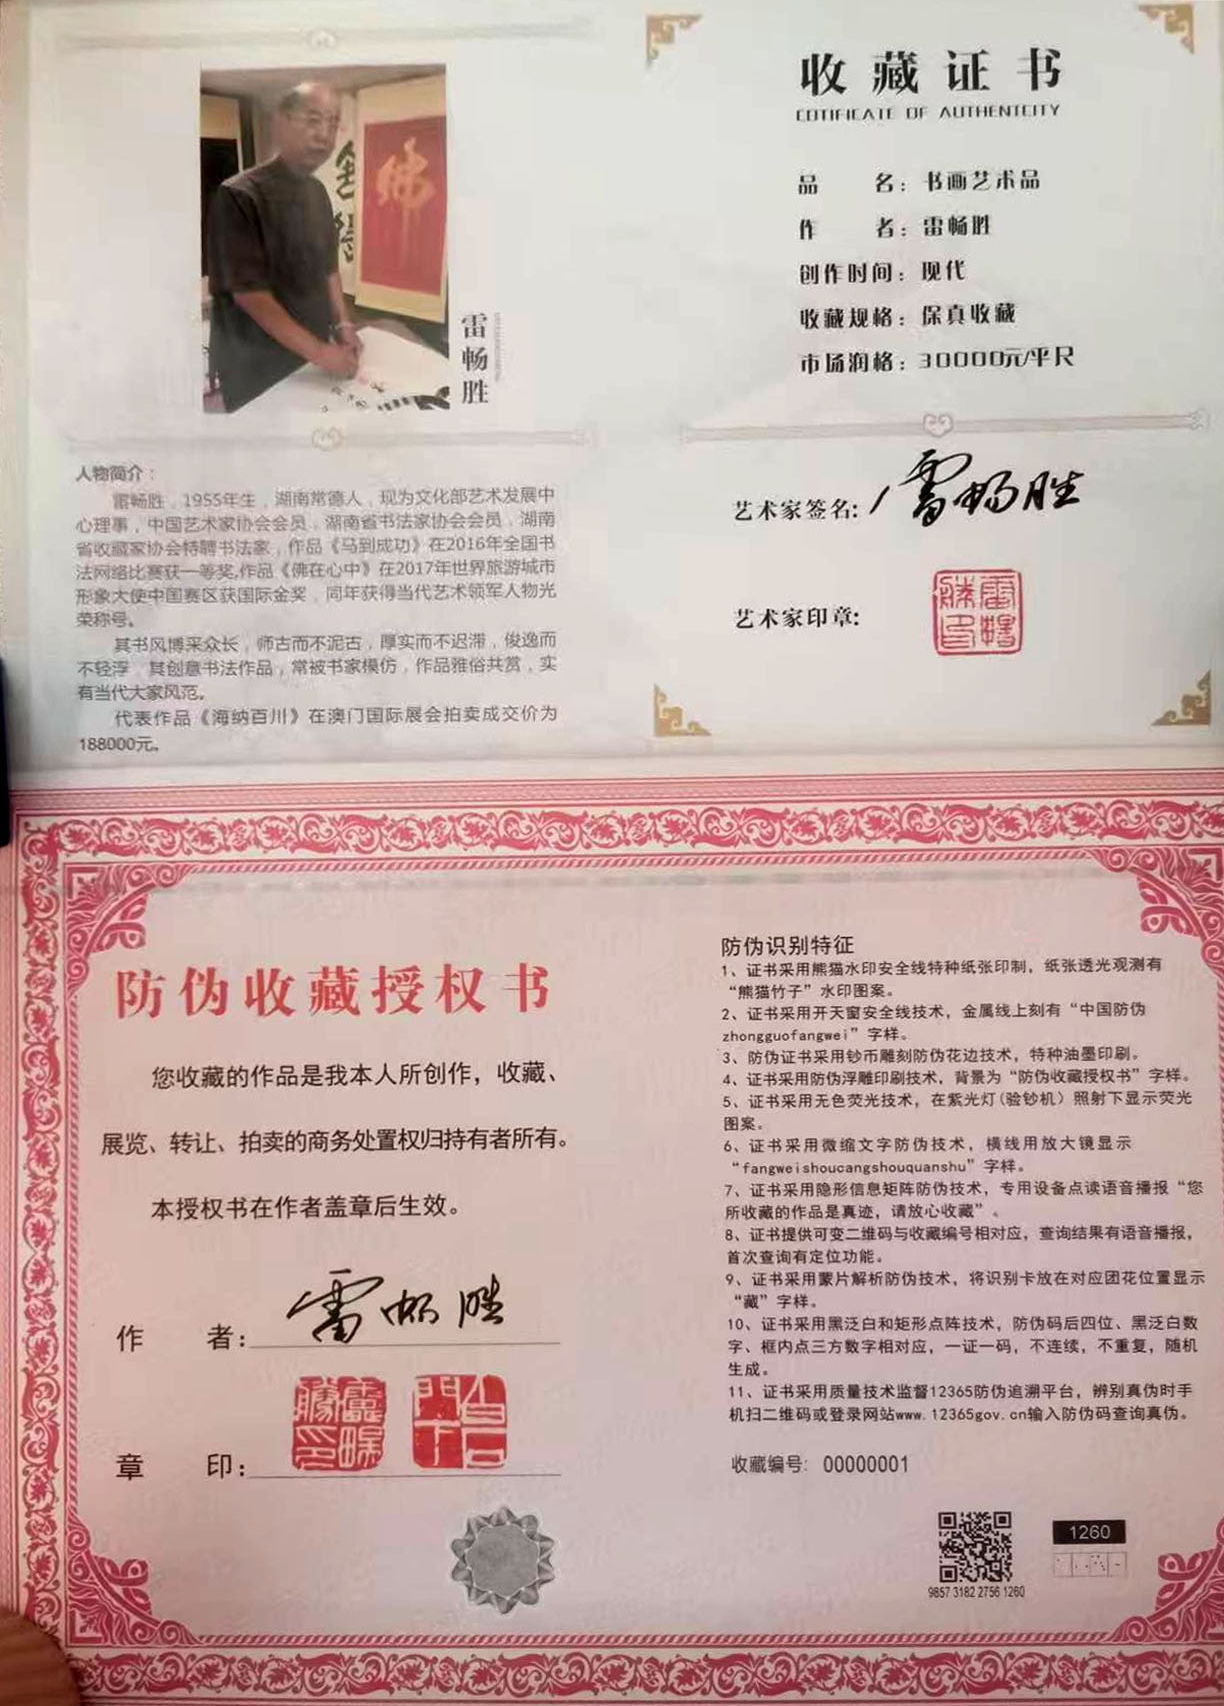 收藏证书
COTIFICATE OF AUTHENTCITY
品 名：书画艺术品
作 者：雷畅胜
创作时间：现代
收藏规格：保真收藏
市场润格：30000元/平尺
佛
雷畅胜
人物简介：
雷畅胜，1955年生，湖南常德人，现为文化部艺术发展中
心理事，中国艺术家协会会员，湖南省书法家协会会员，湖南
省收藏家协会特聘书法家，作品《马到成功》在2016年全国书
法网络比赛获一等奖,作品《佛在心中》在2017年世界旅游城市
形象大使中国赛区获国际金奖，同年获得当代艺术领军人物光
荣称号。
其书风博采众长，师古而不泥古，厚实而不迟滞，俊逸而
不轻浮，其创意书法作品，常被书家模仿，作品雅俗共赏，实
有当代大家风范。
代表作品《海纳百川》在澳门国际展会拍卖成交价为
188000元。
艺术家签名：雷畅胜
艺术家印章：
防伪收藏授权书
您收藏的作品是我本人所创作，收藏、
展览、转让、拍卖的商务处置权归持有者所有。
本授权书在作者盖章后生效。
作 者：雷畅胜
章 印：
防伪识别特征
1、证书采用熊猫水印安全线特种纸张印制，纸张透光观测有
“熊猫竹子”水印图案。
2、证书采用开天窗安全线技术，金属线上刻有“中国防伪
zhongguofangwei”字样。
3、防伪证书采用钞币雕刻防伪花边技术，特种油墨印刷。
4、证书采用防伪浮雕印刷技术，背景为“防伪收藏授权书”字样。
5、证书采用无色荧光技术，在紫光灯(验钞机）照射下显示荧光
图案。
6、证书采用微缩文字防伪技术，横线用放大镜显示
“fangweishoucangshouquanshu”字样。
7、证书采用隐形信息矩阵防伪技术，专用设备点读语音播报“您
所收藏的作品是真迹，请放心收藏”。
8、证书提供可变二维码与收藏编号相对应，查询结果有语音播报，
首次查询有定位功能。
9、证书采用蒙片解析防伪技术，将识别卡放在对应团花位置显示
“藏”字样。
10、证书采用黑泛白和矩形点阵技术，防伪码后四位、黑泛白数
字、框内点三方数字相对应，一证一码，不连续，不重复，随机
生成。
11、证书采用质量技术监督12365防伪追溯平台，辨别真伪时手
机扫二维码或登录网站www.12365gov.cn输入防伪码查询真伪。
收藏编号：00000001
1260
9857 3182 2756 1260